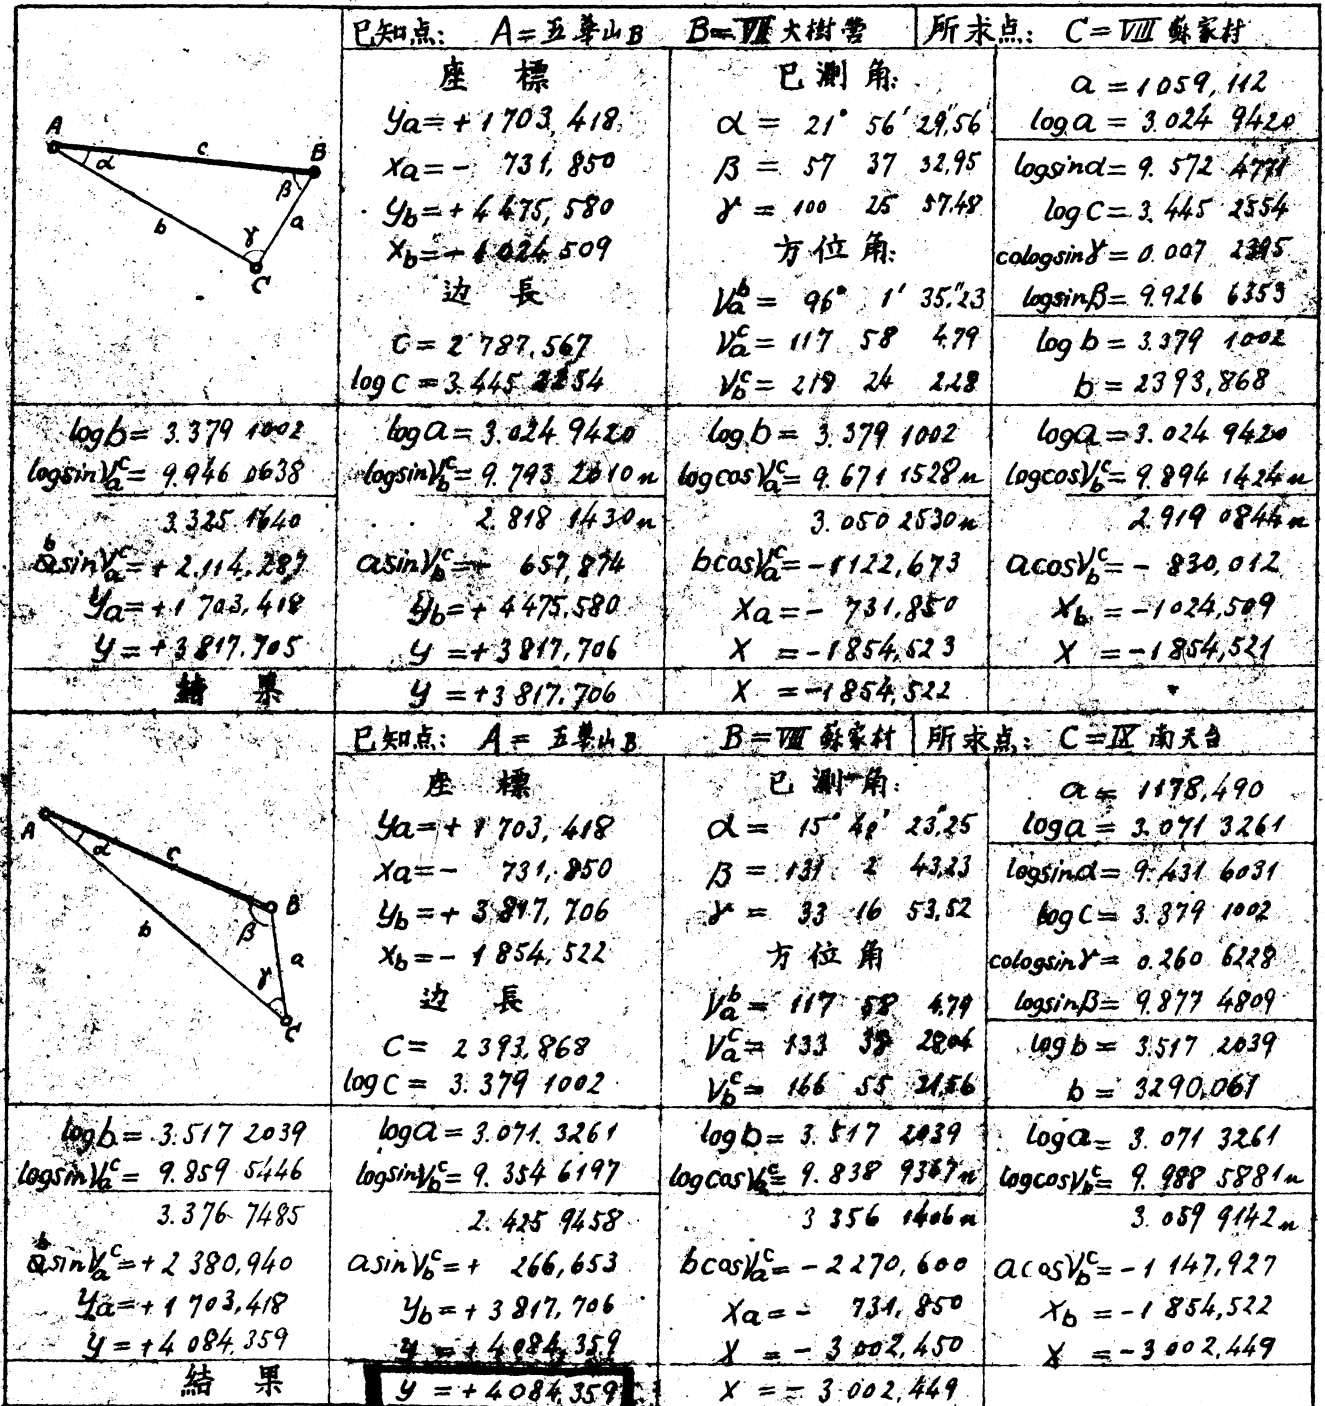 已知点: A=五華山B B=Ⅶ大樹营 所求点: C=Ⅷ蘇家村
A c B α β b a γ C
座 標
ya=+1703,418
xa=- 731,850
yb=+4475,580
xb=-1024,509
边 長
c=2787,567
log c=3.445 2254
已測角:
α= 21° 56′ 29,″56
β= 57 37 32,95
γ= 100 25 57,48
方位角:
Vₐᵇ= 96° 1′ 35,″23
Vₐᶜ= 117 58 4,79
V_bᶜ= 218 24 2,28
a=1059,112
log a=3.024 9420
logsinα=9.572 4771
log c=3.445 2254
cologsinγ=0.007 2395
logsinβ=9.926 6353
log b=3.379 1002
b=2393,868
log b=3.379 1002
logsinVₐᶜ=9.946 0638
3.325 1640
b sinVₐᶜ=+2.114,287
ya=+1703,418
y=+3817,705
log a=3.024 9420
logsinV_bᶜ=9.793 2010n
2.818 1430n
a sinV_bᶜ= 657,874
yb=+4475,580
y=+3817,706
log b=3.379 1002
logcosVₐᶜ=9.671 1528n
3.050 2530n
b cosVₐᶜ=-1122,673
xa=- 731,850
x=-1854,523
log a=3.024 9420
logcosV_bᶜ=9.894 1424n
2.919 0844n
a cosV_bᶜ=- 830,012
xb=-1024,509
x=-1854,521
結 果 y=+3817,706 x=-1854,522
已知点: A=五華山B B=Ⅷ蘇家村 所求点: C=Ⅸ南天台
A α c B β b a γ C
座 標
ya=+1703,418
xa=- 731,850
yb=+3817,706
xb=-1854,522
边 長
c=2393,868
log c=3.379 1002
已測角:
α= 15° 40′ 23,″25
β= 131 2 43,23
γ= 33 16 53,52
方位角
Vₐᵇ= 117 58 4,79
Vₐᶜ= 133 38 28,04
V_bᶜ= 166 55 21,56
a=1178,490
log a=3.071 3261
logsinα=9.431 6031
log c=3.379 1002
cologsinγ=0.260 6228
logsinβ=9.877 4809
log b=3.517 2039
b=3290,061
log b=3.517 2039
logsinVₐᶜ=9.859 5446
3.376 7485
b sinVₐᶜ=+2380,940
ya=+1703,418
y=+4084,359
log a=3.071 3261
logsinV_bᶜ=9.354 6197
2.425 9458
a sinV_bᶜ=+ 266,653
yb=+3817,706
y=+4084,359
log b=3.517 2039
logcosVₐᶜ=9.838 9367n
3 356 1406n
b cosVₐᶜ=-2270,600
xa=- 731,850
x=-3002,450
log a=3.071 3261
logcosV_bᶜ=9.988 5881n
3.059 9142n
a cosV_bᶜ=-1147,927
xb=-1854,522
x=-3002,449
結 果 y=+4084,359 x=-3002,449